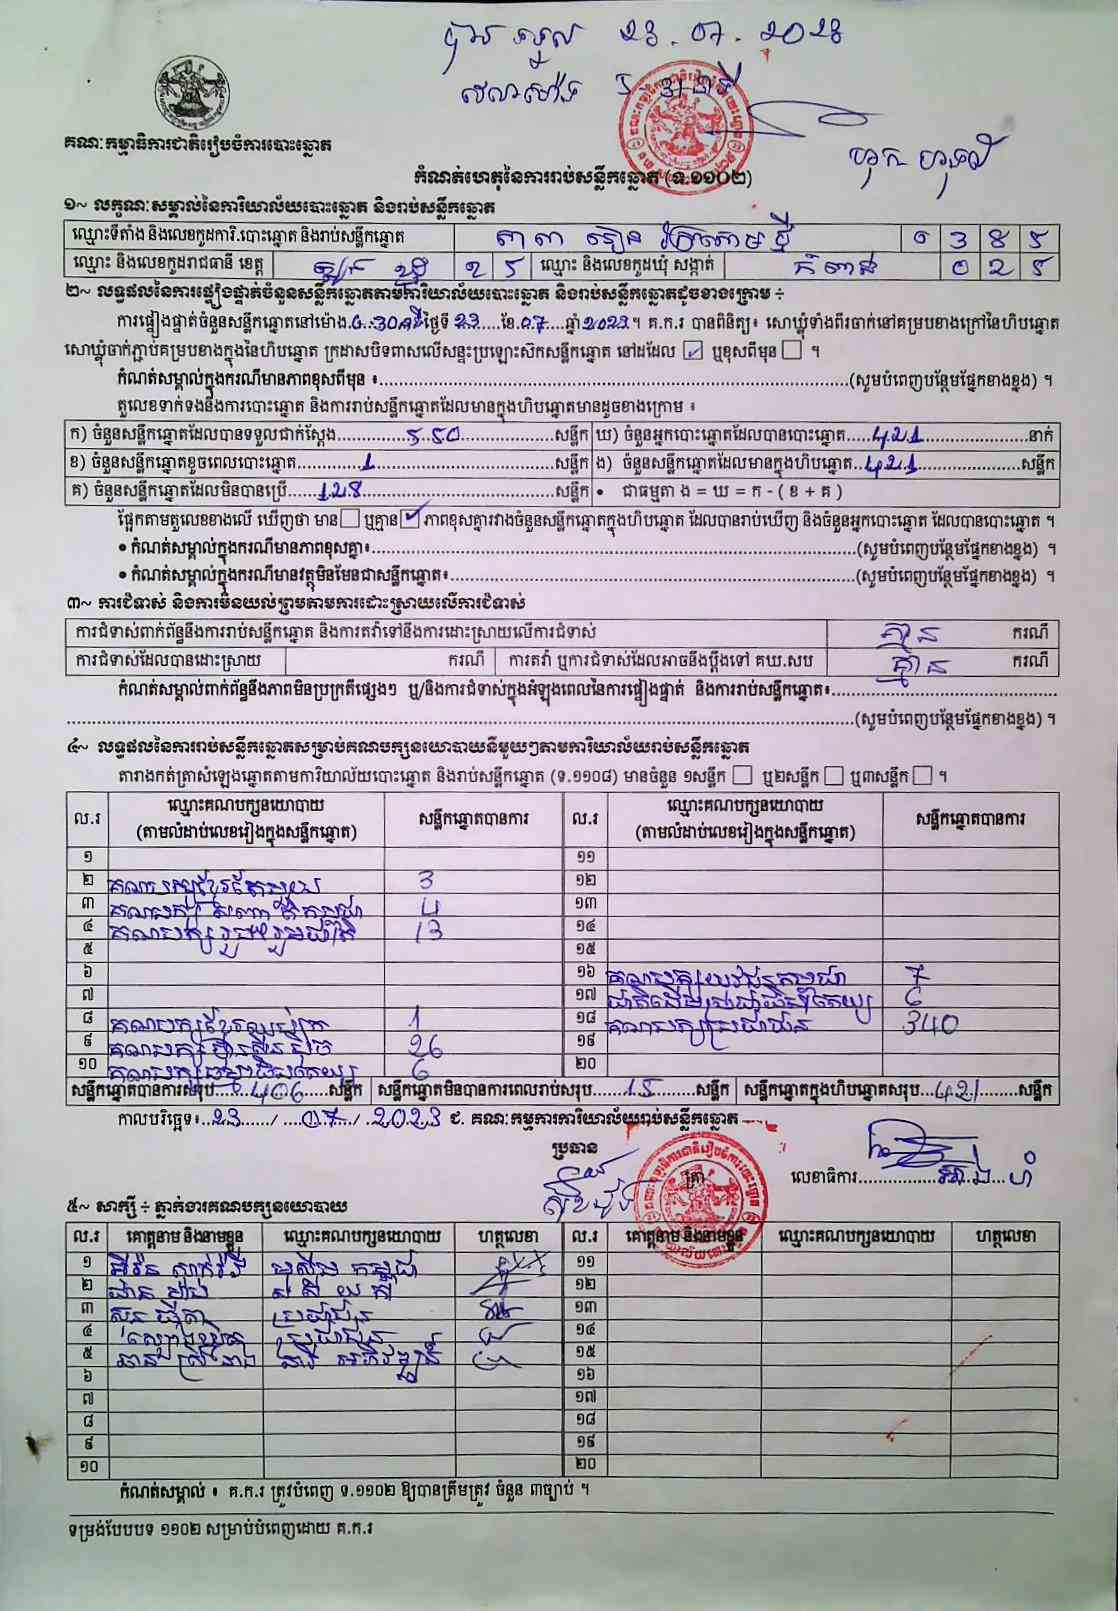 23.07.2023
គណៈកម្មាធិការជាតិរៀបចំការបោះឆ្នោត
កំណត់ហេតុនៃការរាប់សន្លឹកឆ្នោត (ទ.១១០២)
១~ លក្ខណៈសម្គាល់នៃការិយាល័យបោះឆ្នោត និងរាប់សន្លឹកឆ្នោត
ឈ្មោះទីតាំង និងលេខកូដការិ.បោះឆ្នោត និងរាប់សន្លឹកឆ្នោត
ឈ្មោះ និងលេខកូដរាជធានី ខេត្ត 25 ឈ្មោះ និងលេខកូដឃុំ សង្កាត់
២~ លទ្ធផលនៃការផ្ទៀងផ្ទាត់ចំនួនសន្លឹកឆ្នោតតាមការិយាល័យបោះឆ្នោត និងរាប់សន្លឹកឆ្នោតដូចខាងក្រោម ÷
ការផ្ទៀងផ្ទាត់ចំនួនសន្លឹកឆ្នោតនៅម៉ោង ថ្ងៃទី 23 ខែ 07 ឆ្នាំ 2023។ គ.ក.រ បានពិនិត្យ៖ សោឃ្លុំទាំងពីរចាក់នៅគម្របខាងក្រៅនៃហិបឆ្នោត
សោឃ្លុំចាក់ភ្ជាប់គម្របខាងក្នុងនៃហិបឆ្នោត ក្រដាសបិទពាសលើសន្ទះប្រឡោះស៊កសន្លឹកឆ្នោត នៅដដែល ☑ ឬខុសពីមុន ☐ ។
កំណត់សម្គាល់ក្នុងករណីមានភាពខុសពីមុន ៖ (សូមបំពេញបន្ថែមផ្នែកខាងខ្នង) ។
តួលេខទាក់ទងនឹងការបោះឆ្នោត និងការរាប់សន្លឹកឆ្នោតដែលមានក្នុងហិបឆ្នោតមានដូចខាងក្រោម ៖
ក) ចំនួនសន្លឹកឆ្នោតដែលបានទទួលជាក់ស្តែង 550 សន្លឹក ឃ) ចំនួនអ្នកបោះឆ្នោតដែលបានបោះឆ្នោត 421 នាក់
ខ) ចំនួនសន្លឹកឆ្នោតខូចពេលបោះឆ្នោត 1 សន្លឹក ង) ចំនួនសន្លឹកឆ្នោតដែលមានក្នុងហិបឆ្នោត 421 សន្លឹក
គ) ចំនួនសន្លឹកឆ្នោតដែលមិនបានប្រើ 128 សន្លឹក • ជាធម្មតា ង = ឃ = ក - ( ខ + គ )
ផ្អែកតាមតួលេខខាងលើ ឃើញថា មាន ☐ ឬគ្មាន ☑ ភាពខុសគ្នារវាងចំនួនសន្លឹកឆ្នោតក្នុងហិបឆ្នោត ដែលបានរាប់ឃើញ និងចំនួនអ្នកបោះឆ្នោត ដែលបានបោះឆ្នោត ។
• កំណត់សម្គាល់ក្នុងករណីមានភាពខុសគ្នា៖ (សូមបំពេញបន្ថែមផ្នែកខាងខ្នង) ។
• កំណត់សម្គាល់ក្នុងករណីមានវត្ថុមិនមែនជាសន្លឹកឆ្នោត៖ (សូមបំពេញបន្ថែមផ្នែកខាងខ្នង) ។
៣~ ការជំទាស់ និងការមិនយល់ព្រមតាមការដោះស្រាយលើការជំទាស់
ការជំទាស់ពាក់ព័ន្ធនឹងការរាប់សន្លឹកឆ្នោត និងការតវ៉ាទៅនឹងការដោះស្រាយលើការជំទាស់ គ្មាន ករណី
ការជំទាស់ដែលបានដោះស្រាយ ករណី ការតវ៉ា ឬការជំទាស់ដែលអាចនឹងប្តឹងទៅ គឃ.សប គ្មាន ករណី
កំណត់សម្គាល់ពាក់ព័ន្ធនឹងភាពមិនប្រក្រតីផ្សេងៗ ឬ/និងការជំទាស់ក្នុងអំឡុងពេលនៃការផ្ទៀងផ្ទាត់ និងការរាប់សន្លឹកឆ្នោត៖
(សូមបំពេញបន្ថែមផ្នែកខាងខ្នង) ។
៤~ លទ្ធផលនៃការរាប់សន្លឹកឆ្នោតសម្រាប់គណបក្សនយោបាយនីមួយៗតាមការិយាល័យរាប់សន្លឹកឆ្នោត
តារាងកត់ត្រាសំឡេងឆ្នោតតាមការិយាល័យបោះឆ្នោត និងរាប់សន្លឹកឆ្នោត (ទ.១១០៨) មានចំនួន ១សន្លឹក ☐ ឬ២សន្លឹក ☐ ឬ៣សន្លឹក ☐ ។
ល.រ ឈ្មោះគណបក្សនយោបាយ (តាមលំដាប់លេខរៀងក្នុងសន្លឹកឆ្នោត) សន្លឹកឆ្នោតបានការ ល.រ ឈ្មោះគណបក្សនយោបាយ (តាមលំដាប់លេខរៀងក្នុងសន្លឹកឆ្នោត) សន្លឹកឆ្នោតបានការ
១ ១១
២ គណបក្សខ្មែរតែមួយ 3 ១២
៣ គណបក្ស 4 ១៣
៤ គណបក្សរួបរួមជាតិ 13 ១៤
៥ ១៥
៦ ១៦ គណបក្សយុវជនកម្ពុជា 7
៧ ១៧ ជាតិដើមប្រជាធិបតេយ្យ 6
៨ គណបក្សខ្មែរឈប់ក្រ 1 ១៨ គណបក្សប្រជាជន 340
៩ គណបក្សហ៊្វុនស៊ិនប៉ិច 26 ១៩
១០ គណបក្សធម្មាធិបតេយ្យ 6 ២០
សន្លឹកឆ្នោតបានការសរុប 406 សន្លឹក សន្លឹកឆ្នោតមិនបានការពេលរាប់សរុប 15 សន្លឹក សន្លឹកឆ្នោតក្នុងហិបឆ្នោតសរុប 421 សន្លឹក
កាលបរិច្ឆេទ៖ 23 / 07 / 2023 ជ. គណៈកម្មការការិយាល័យរាប់សន្លឹកឆ្នោត
ប្រធាន
ត្រា លេខាធិការ
៥~ សាក្សី ÷ ភ្នាក់ងារគណបក្សនយោបាយ
ល.រ គោត្តនាម និងនាមខ្លួន ឈ្មោះគណបក្សនយោបាយ ហត្ថលេខា ល.រ គោត្តនាម និងនាមខ្លួន ឈ្មោះគណបក្សនយោបាយ ហត្ថលេខា
១ ១១
២ ១២
៣ ប្រជាជន ១៣
៤ ប្រជាជន ១៤
៥ ១៥
៦ ១៦
៧ ១៧
៨ ១៨
៩ ១៩
១០ ២០
កំណត់សម្គាល់ ៖ គ.ក.រ ត្រូវបំពេញ ទ.១១០២ ឱ្យបានត្រឹមត្រូវ ចំនួន ៣ច្បាប់ ។
ទម្រង់បែបបទ ១១០២ សម្រាប់បំពេញដោយ គ.ក.រ